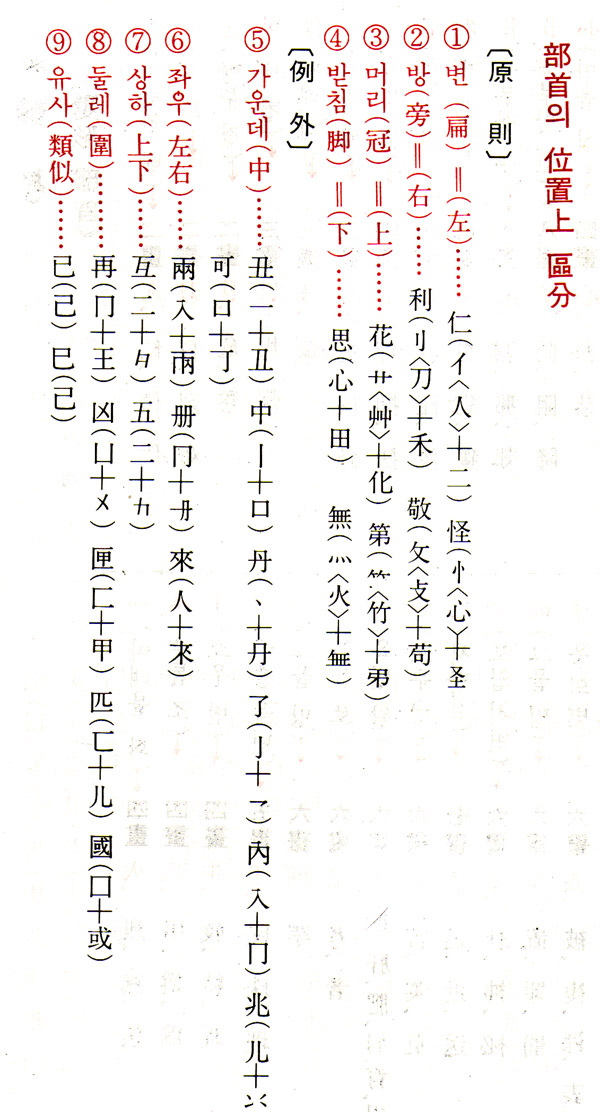 部首의 位置上 區分
〔原 則〕
① 변 (扁) ‖(左)…… 仁(亻〈人〉十二) 怪(忄〈心〉十圣
② 방(旁)‖(右)…… 利(刂〈刀〉十禾) 敬(攵〈攴〉十苟)
③ 머리(冠)‖(上)…… 花(艹〈艸〉十化) 第(⺮〈竹〉十弟)
④ 받침(脚)‖(下)…… 思(心十田) 無(灬〈火〉十無)
〔例 外〕
⑤ 가운데(中)…… 丑(一十丑) 中(丨十口) 丹(丶十丹) 了(亅十乛) 內(入十冂) 兆(儿十
可(口十丁)
⑥ 좌우(左右)…… 兩(入十兩) 册(冂十冊) 來(人十來)
⑦ 상하(上下)…… 互(二十彑) 五(二十力)
⑧ 둘레(圍)…… 再(冂十王) 凶(凵十㐅) 匣(匚十甲) 匹(匸十儿) 國(囗十或)
⑨ 유사(類似)…… 已(己) 巳(己)